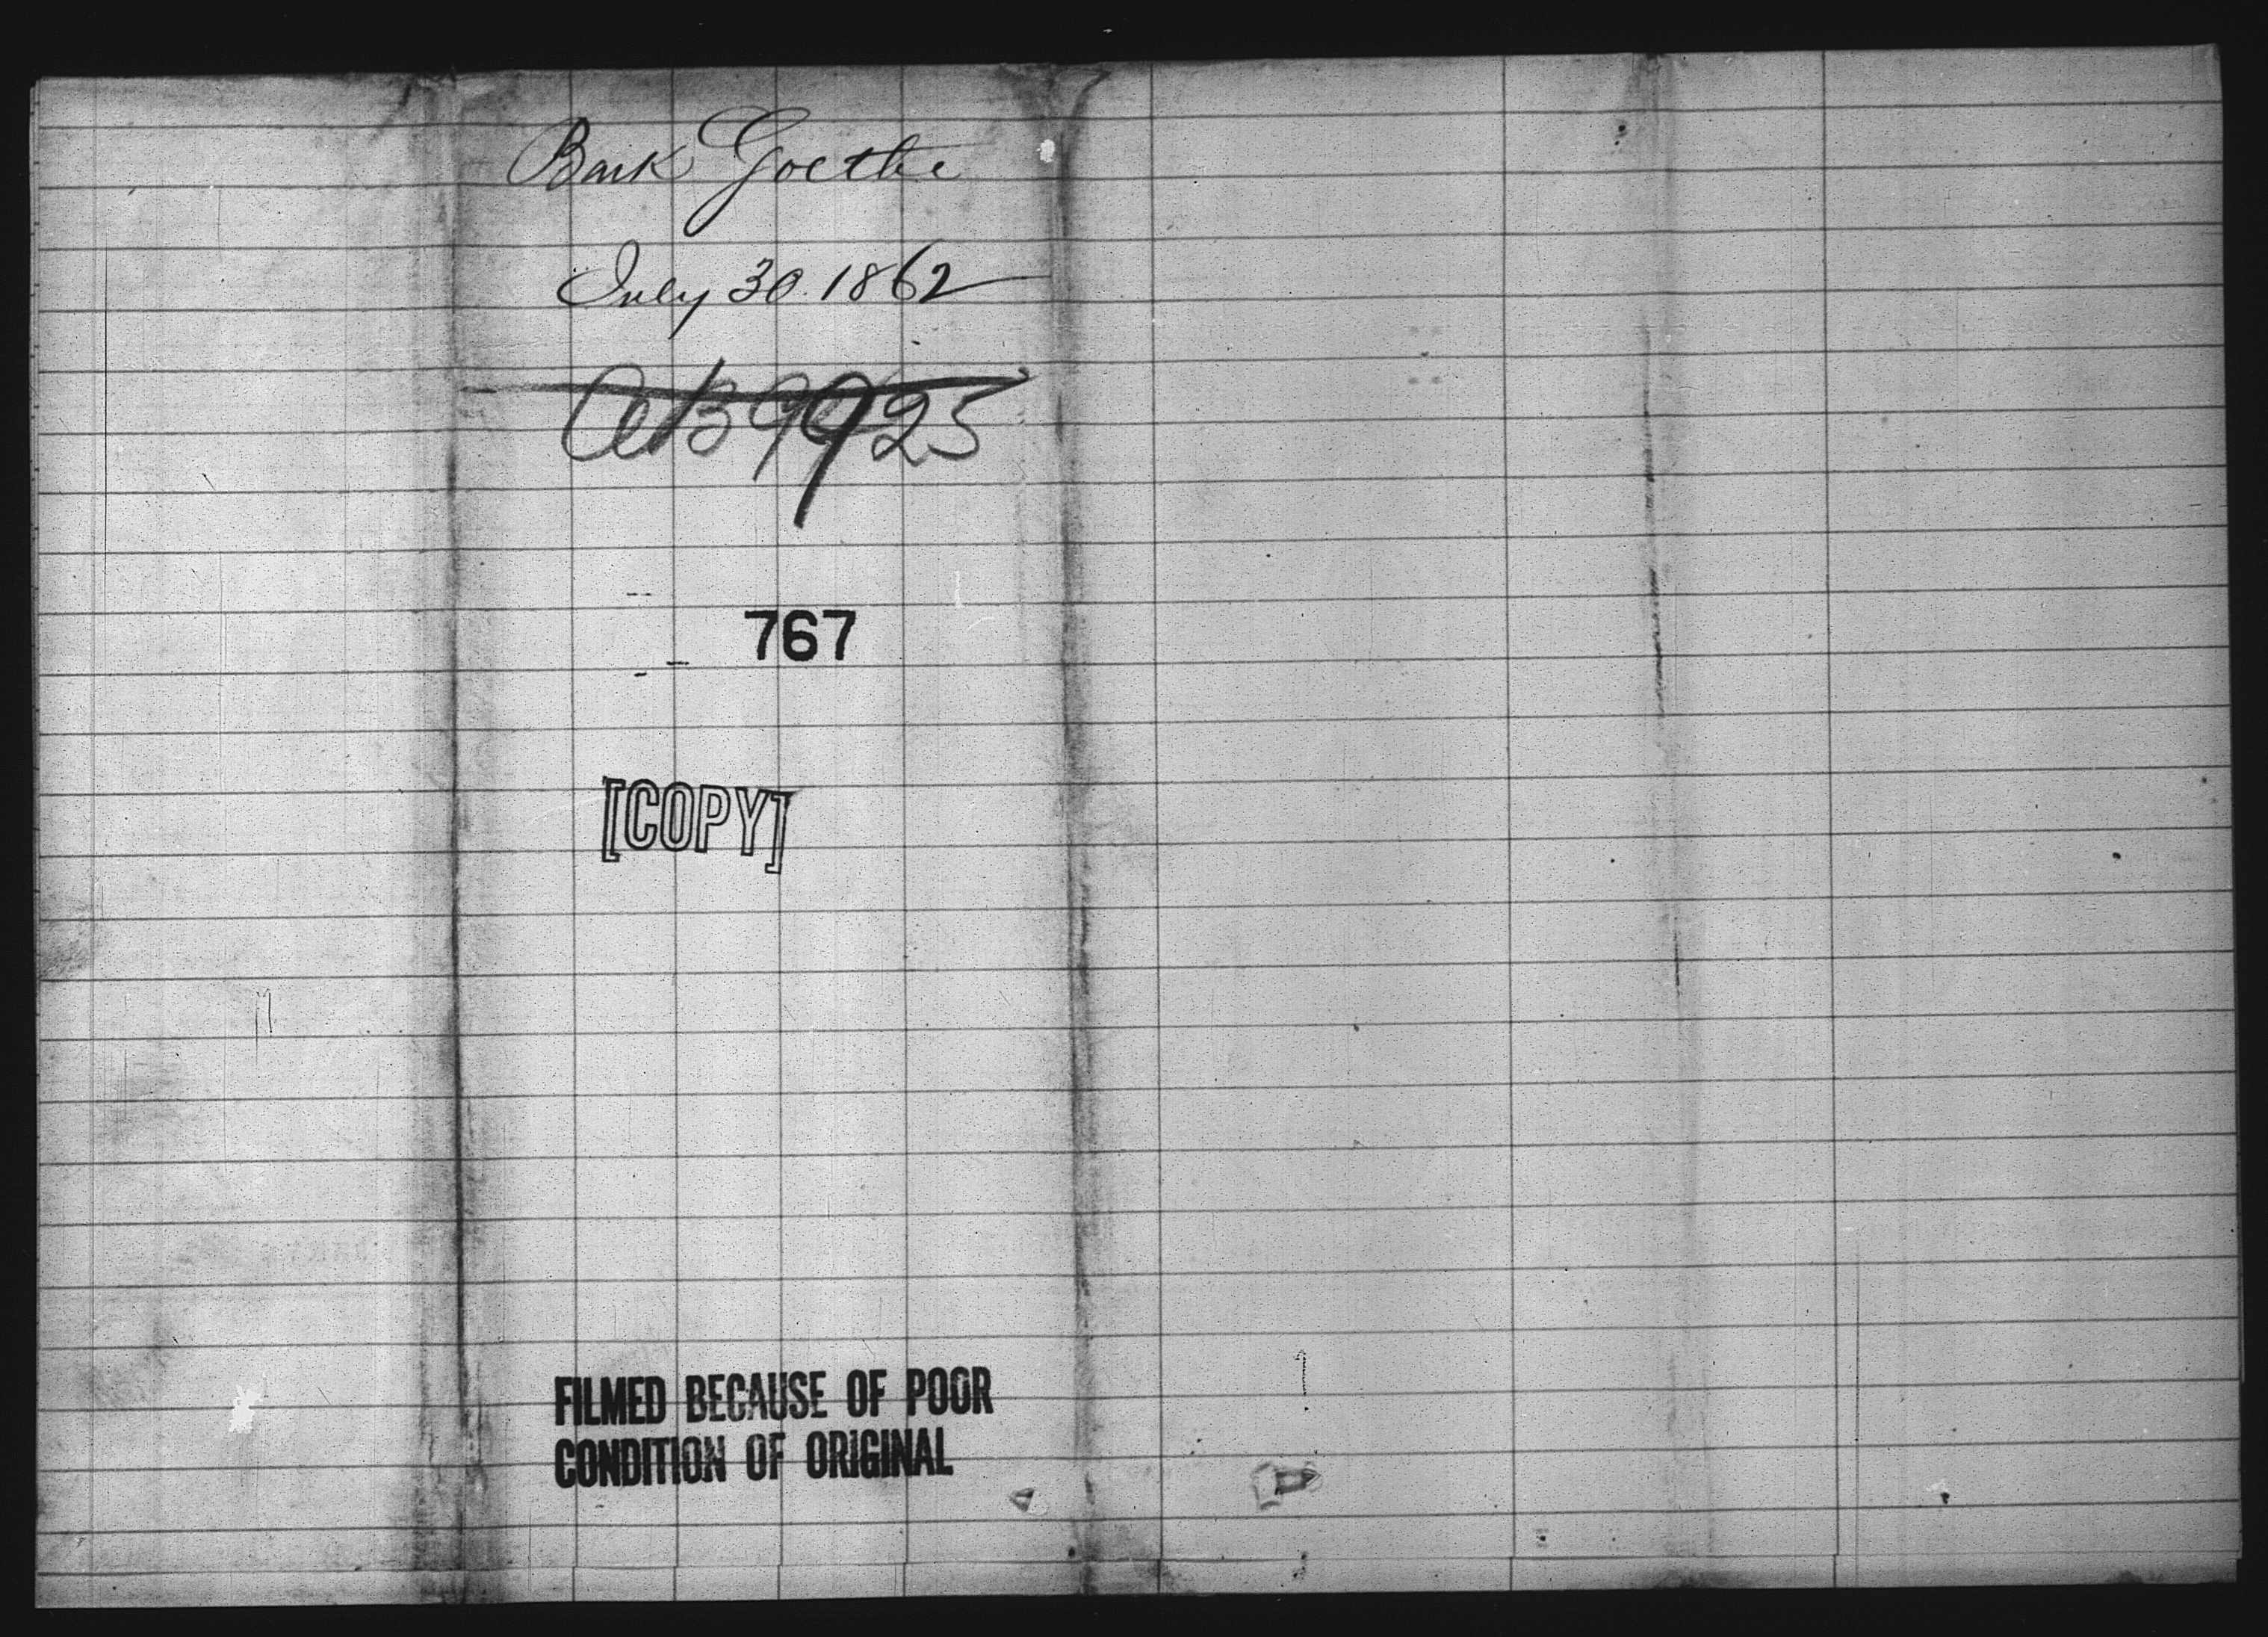 Bark Goethe
July 30. 1862
9925
767
[COPY]
FILMED BECAUSE OF POOR
CONDITION OF ORIGINAL